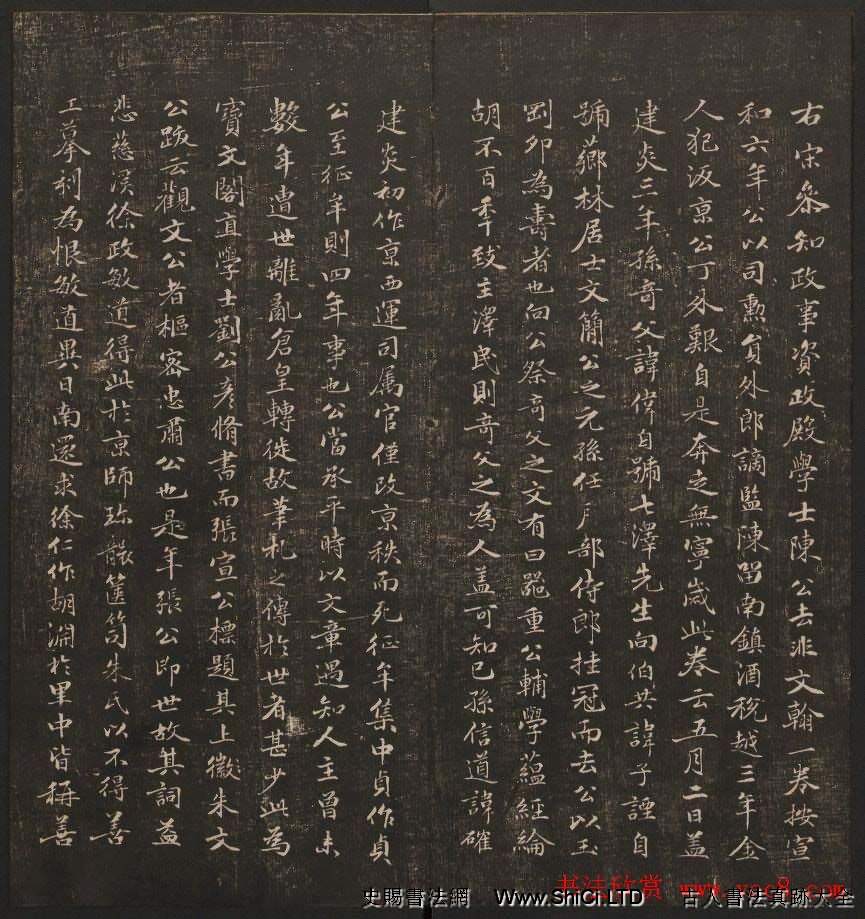 右宋叅知政事資政殿學士陳公去非文翰一卷按宣
和六年公以司勲貟外郎謫監陳留南鎮酒稅越三年金
人犯汳京公丁外艱自是奔走無寧歲此卷云五月二日盖
建炎三年孫竒父諱偉自號七澤先生向伯共諱子諲自
號薌林居士文簡公之元孫任戶部侍郎挂冠而去公以玉
剛卯為壽者也向公祭竒父之文有曰器重公輔學蘊經綸
胡不百年致主澤民則竒父之為人盖可知已孫信道諱確
建炎初作京西運司属官僅改京秩而死征牟集中貞作貞
公至征牟則四年事也公當承平時以文章遇知人主曾未
數年遭世離亂倉皇轉徙故筆札之傳於世者甚少此為
寶文閣直學士劉公彦脩書而張宣公標題其上徽朱文
公跋云觀文公者樞密忠肅公也是年張公即世故其詞益
悲慈溪徐政敏道得此於京師珎襲篋笥朱氏以不得善
工摹刋為恨敏道異日南還求徐仁作胡淵於里中皆稱善
史賜書法網 Www.Shici.LTD 古人書法真跡大全
书法欣赏 www.yac8.com